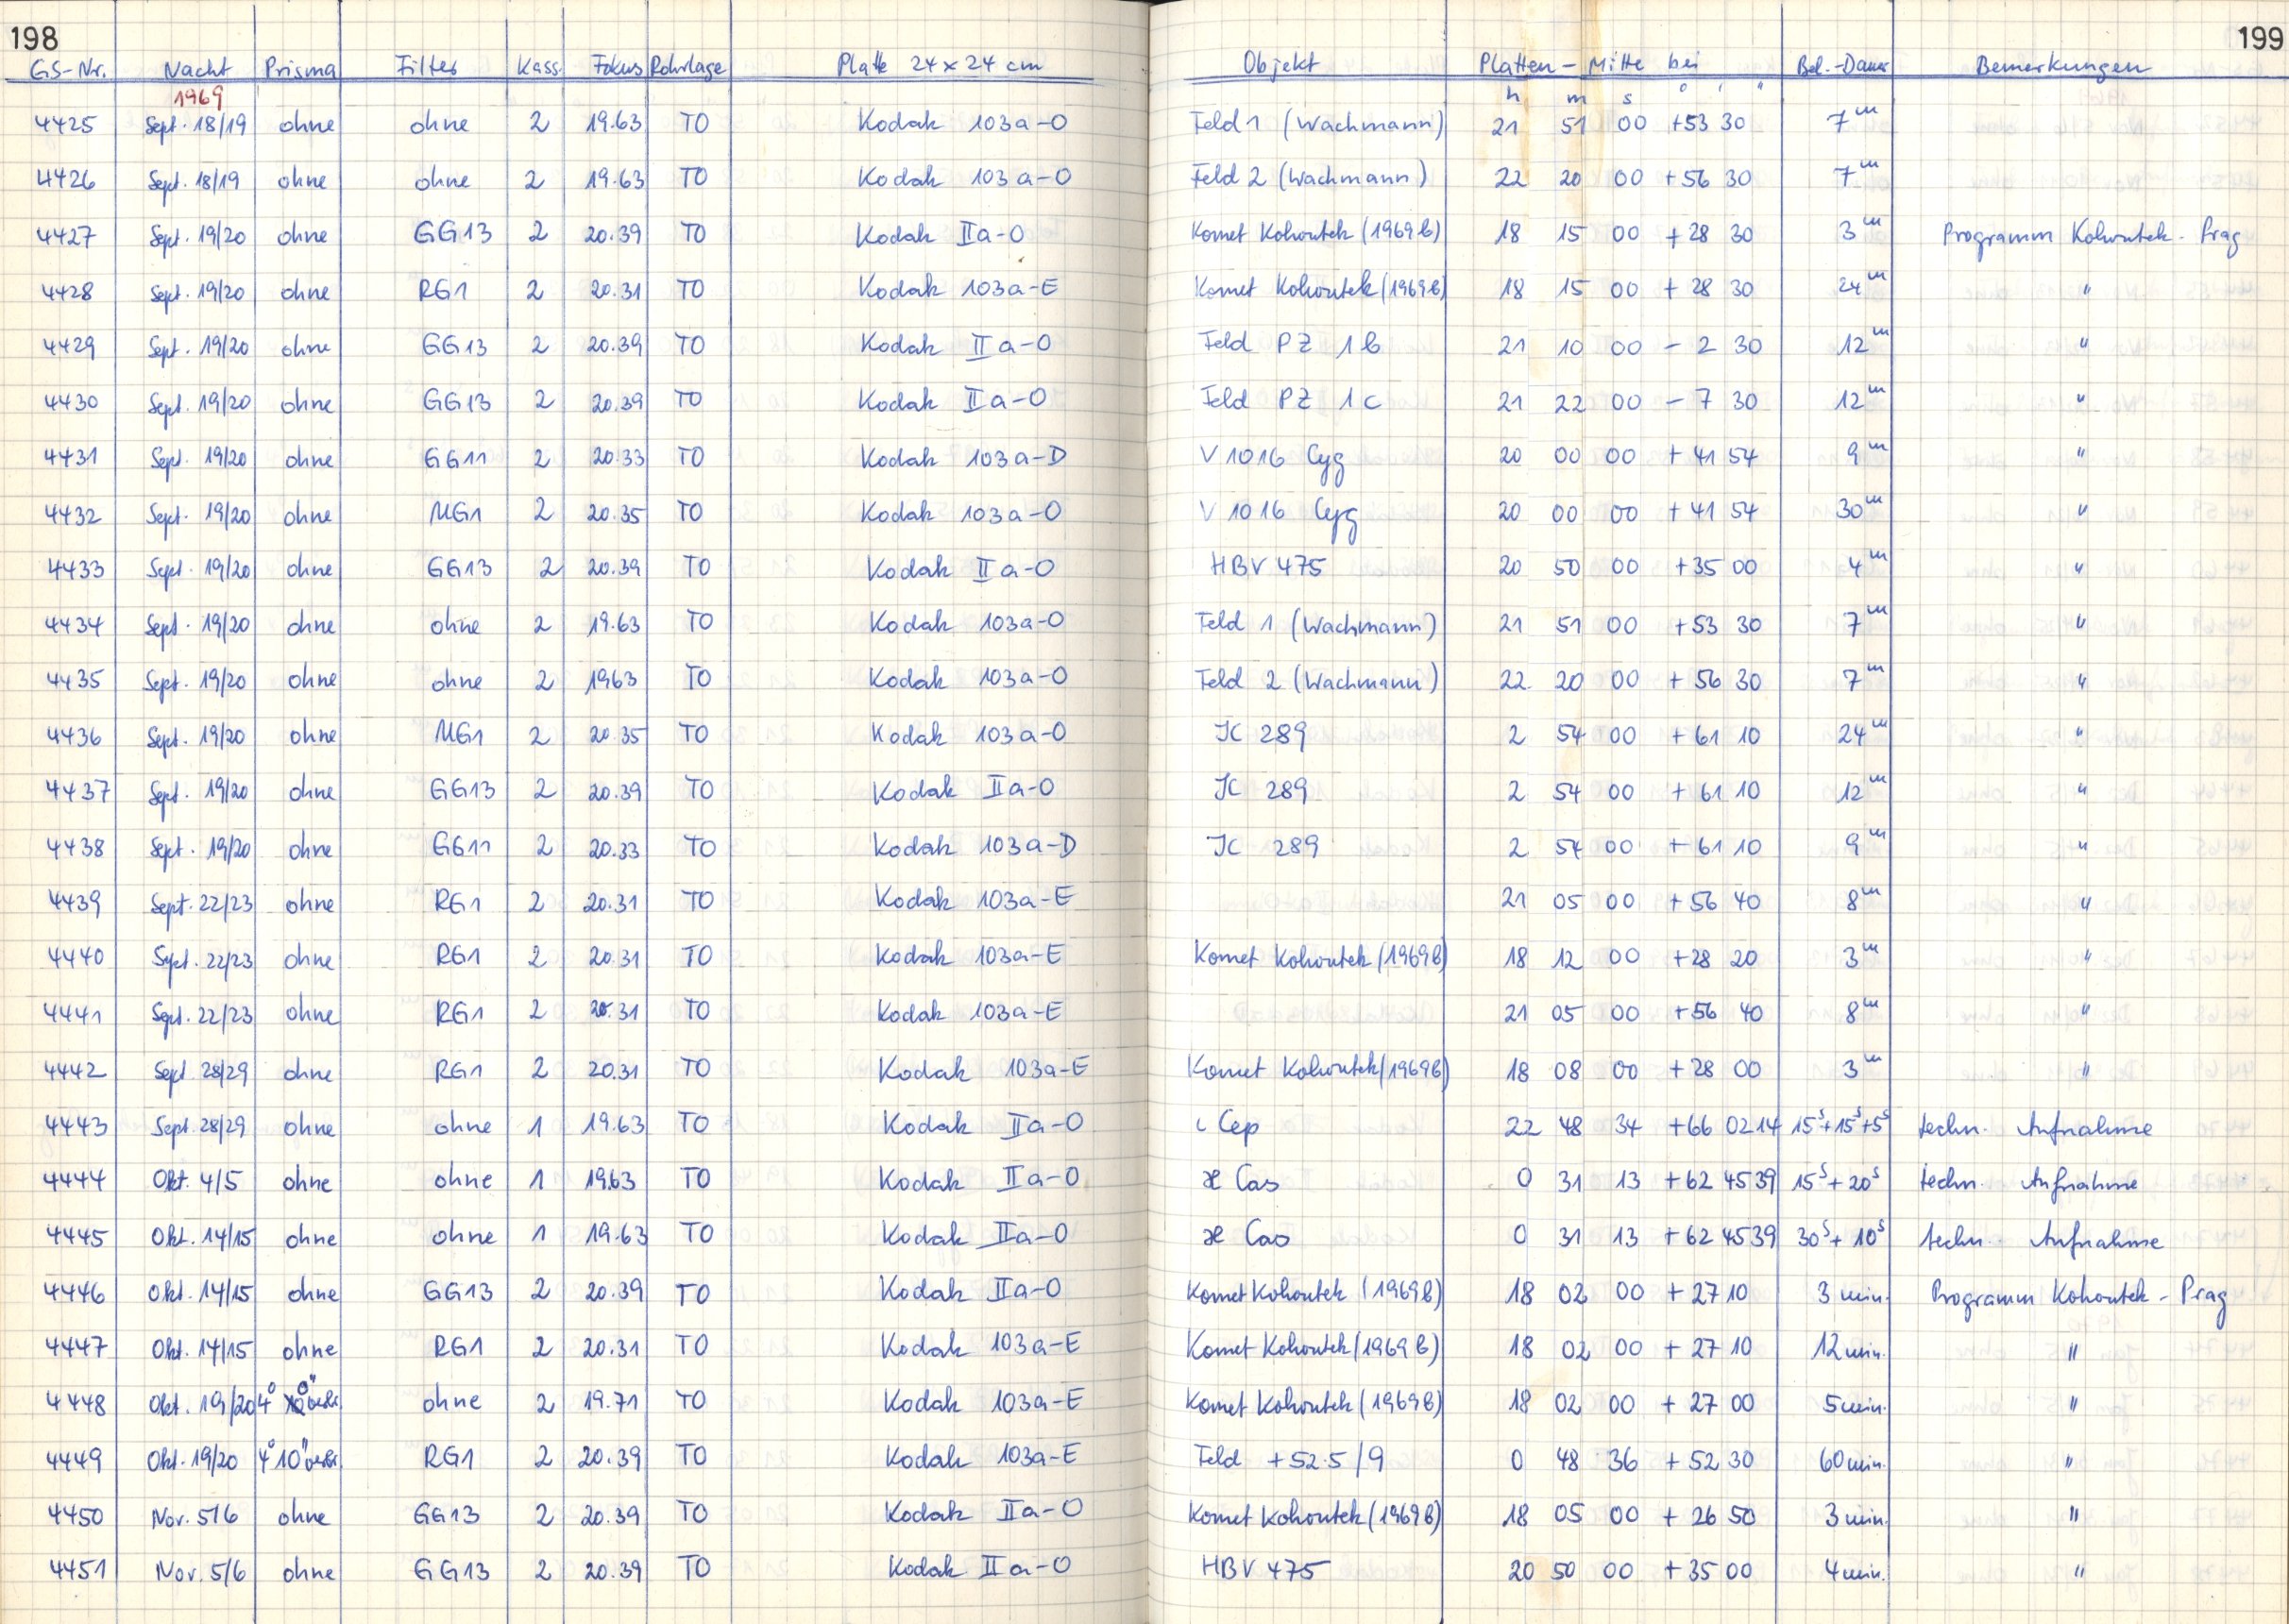 198 199
GS-Nr. Nacht Prisma Filter Kass Fokus Rohrlage Platte 24 x 24 cm Objekt Platten - Mitte bei Bel.-Dauer Bemerkungen
1969 h m s ° ' "
4425 Sept. 18/19 ohne ohne 2 19.63 TO Kodak 103a-O Feld 1 (Wachmann) 21 51 00 +53 30 7m
4426 Sept. 18/19 ohne ohne 2 19.63 TO Kodak 103a-O Feld 2 (Wachmann) 22 20 00 +56 30 7m
4427 Sept. 19/20 ohne GG13 2 20.39 TO Kodak IIa-O Komet Kohoutek (1969b) 18 15 00 +28 30 3m Programm Kohoutek - Prag
4428 Sept. 19/20 ohne RG1 2 20.31 TO Kodak 103a-E Komet Kohoutek (1969b) 18 15 00 +28 30 24m "
4429 Sept. 19/20 ohne GG13 2 20.39 TO Kodak IIa-O Feld PZ 1b 21 10 00 -2 30 12m "
4430 Sept. 19/20 ohne GG13 2 20.39 TO Kodak IIa-O Feld PZ 1c 21 22 00 -7 30 12m "
4431 Sept. 19/20 ohne GG11 2 20.33 TO Kodak 103a-D V 1016 Cyg 20 00 00 +41 54 9m "
4432 Sept. 19/20 ohne MG1 2 20.35 TO Kodak 103a-O V 1016 Cyg 20 00 00 +41 54 30m "
4433 Sept. 19/20 ohne GG13 2 20.39 TO Kodak IIa-O HBV 475 20 50 00 +35 00 4m "
4434 Sept. 19/20 ohne ohne 2 19.63 TO Kodak 103a-O Feld 1 (Wachmann) 21 51 00 +53 30 7m "
4435 Sept. 19/20 ohne ohne 2 1963 TO Kodak 103a-O Feld 2 (Wachmann) 22 20 00 +56 30 7m "
4436 Sept. 19/20 ohne MG1 2 20.35 TO Kodak 103a-O JC 289 2 54 00 +61 10 24m "
4437 Sept. 19/20 ohne GG13 2 20.39 TO Kodak IIa-O JC 289 2 54 00 +61 10 12m "
4438 Sept. 19/20 ohne GG11 2 20.33 TO Kodak 103a-D JC 289 2 54 00 +61 10 9m "
4439 Sept. 22/23 ohne RG1 2 20.31 TO Kodak 103a-E 21 05 00 +56 40 8m "
4440 Sept. 22/23 ohne RG1 2 20.31 TO Kodak 103a-E Komet Kohoutek (1969b) 18 12 00 +28 20 3m "
4441 Sept. 22/23 ohne RG1 2 20.31 TO Kodak 103a-E 21 05 00 +56 40 8m "
4442 Sept 28/29 ohne RG1 2 20.31 TO Kodak 103a-E Komet Kohoutek (1969b) 18 08 00 +28 00 3m "
4443 Sept. 28/29 ohne ohne 1 19.63 TO Kodak IIa-O ι Cep 22 48 34 +66 02 14 15s+15s+5s techn. Aufnahme
4444 Okt. 4/5 ohne ohne 1 19.63 TO Kodak IIa-O ϰ Cas 0 31 13 +62 45 39 15s+20s techn. Aufnahme
4445 Okt. 14/15 ohne ohne 1 19.63 TO Kodak IIa-O ϰ Cas 0 31 13 +62 45 39 30s+10s techn. Aufnahme
4446 Okt. 14/15 ohne GG13 2 20.39 TO Kodak IIa-O Komet Kohoutek (1969b) 18 02 00 +27 10 3 min. Programm Kohoutek - Prag
4447 Okt. 14/15 ohne RG1 2 20.31 TO Kodak 103a-E Komet Kohoutek (1969b) 18 02 00 +27 10 12 min. "
4448 Okt. 19/20 4° ohne 2 19.71 TO Kodak 103a-E Komet Kohoutek (1969b) 18 02 00 +27 00 5 min. "
4449 Okt. 19/20 4° 10" RG1 2 20.39 TO Kodak 103a-E Feld +52.5/9 0 48 36 +52 30 60 min. "
4450 Nov. 5/6 ohne GG13 2 20.39 TO Kodak IIa-O Komet Kohoutek (1969b) 18 05 00 +26 50 3 min. "
4451 Nov. 5/6 ohne GG13 2 20.39 TO Kodak IIa-O HBV 475 20 50 00 +35 00 4 min. "